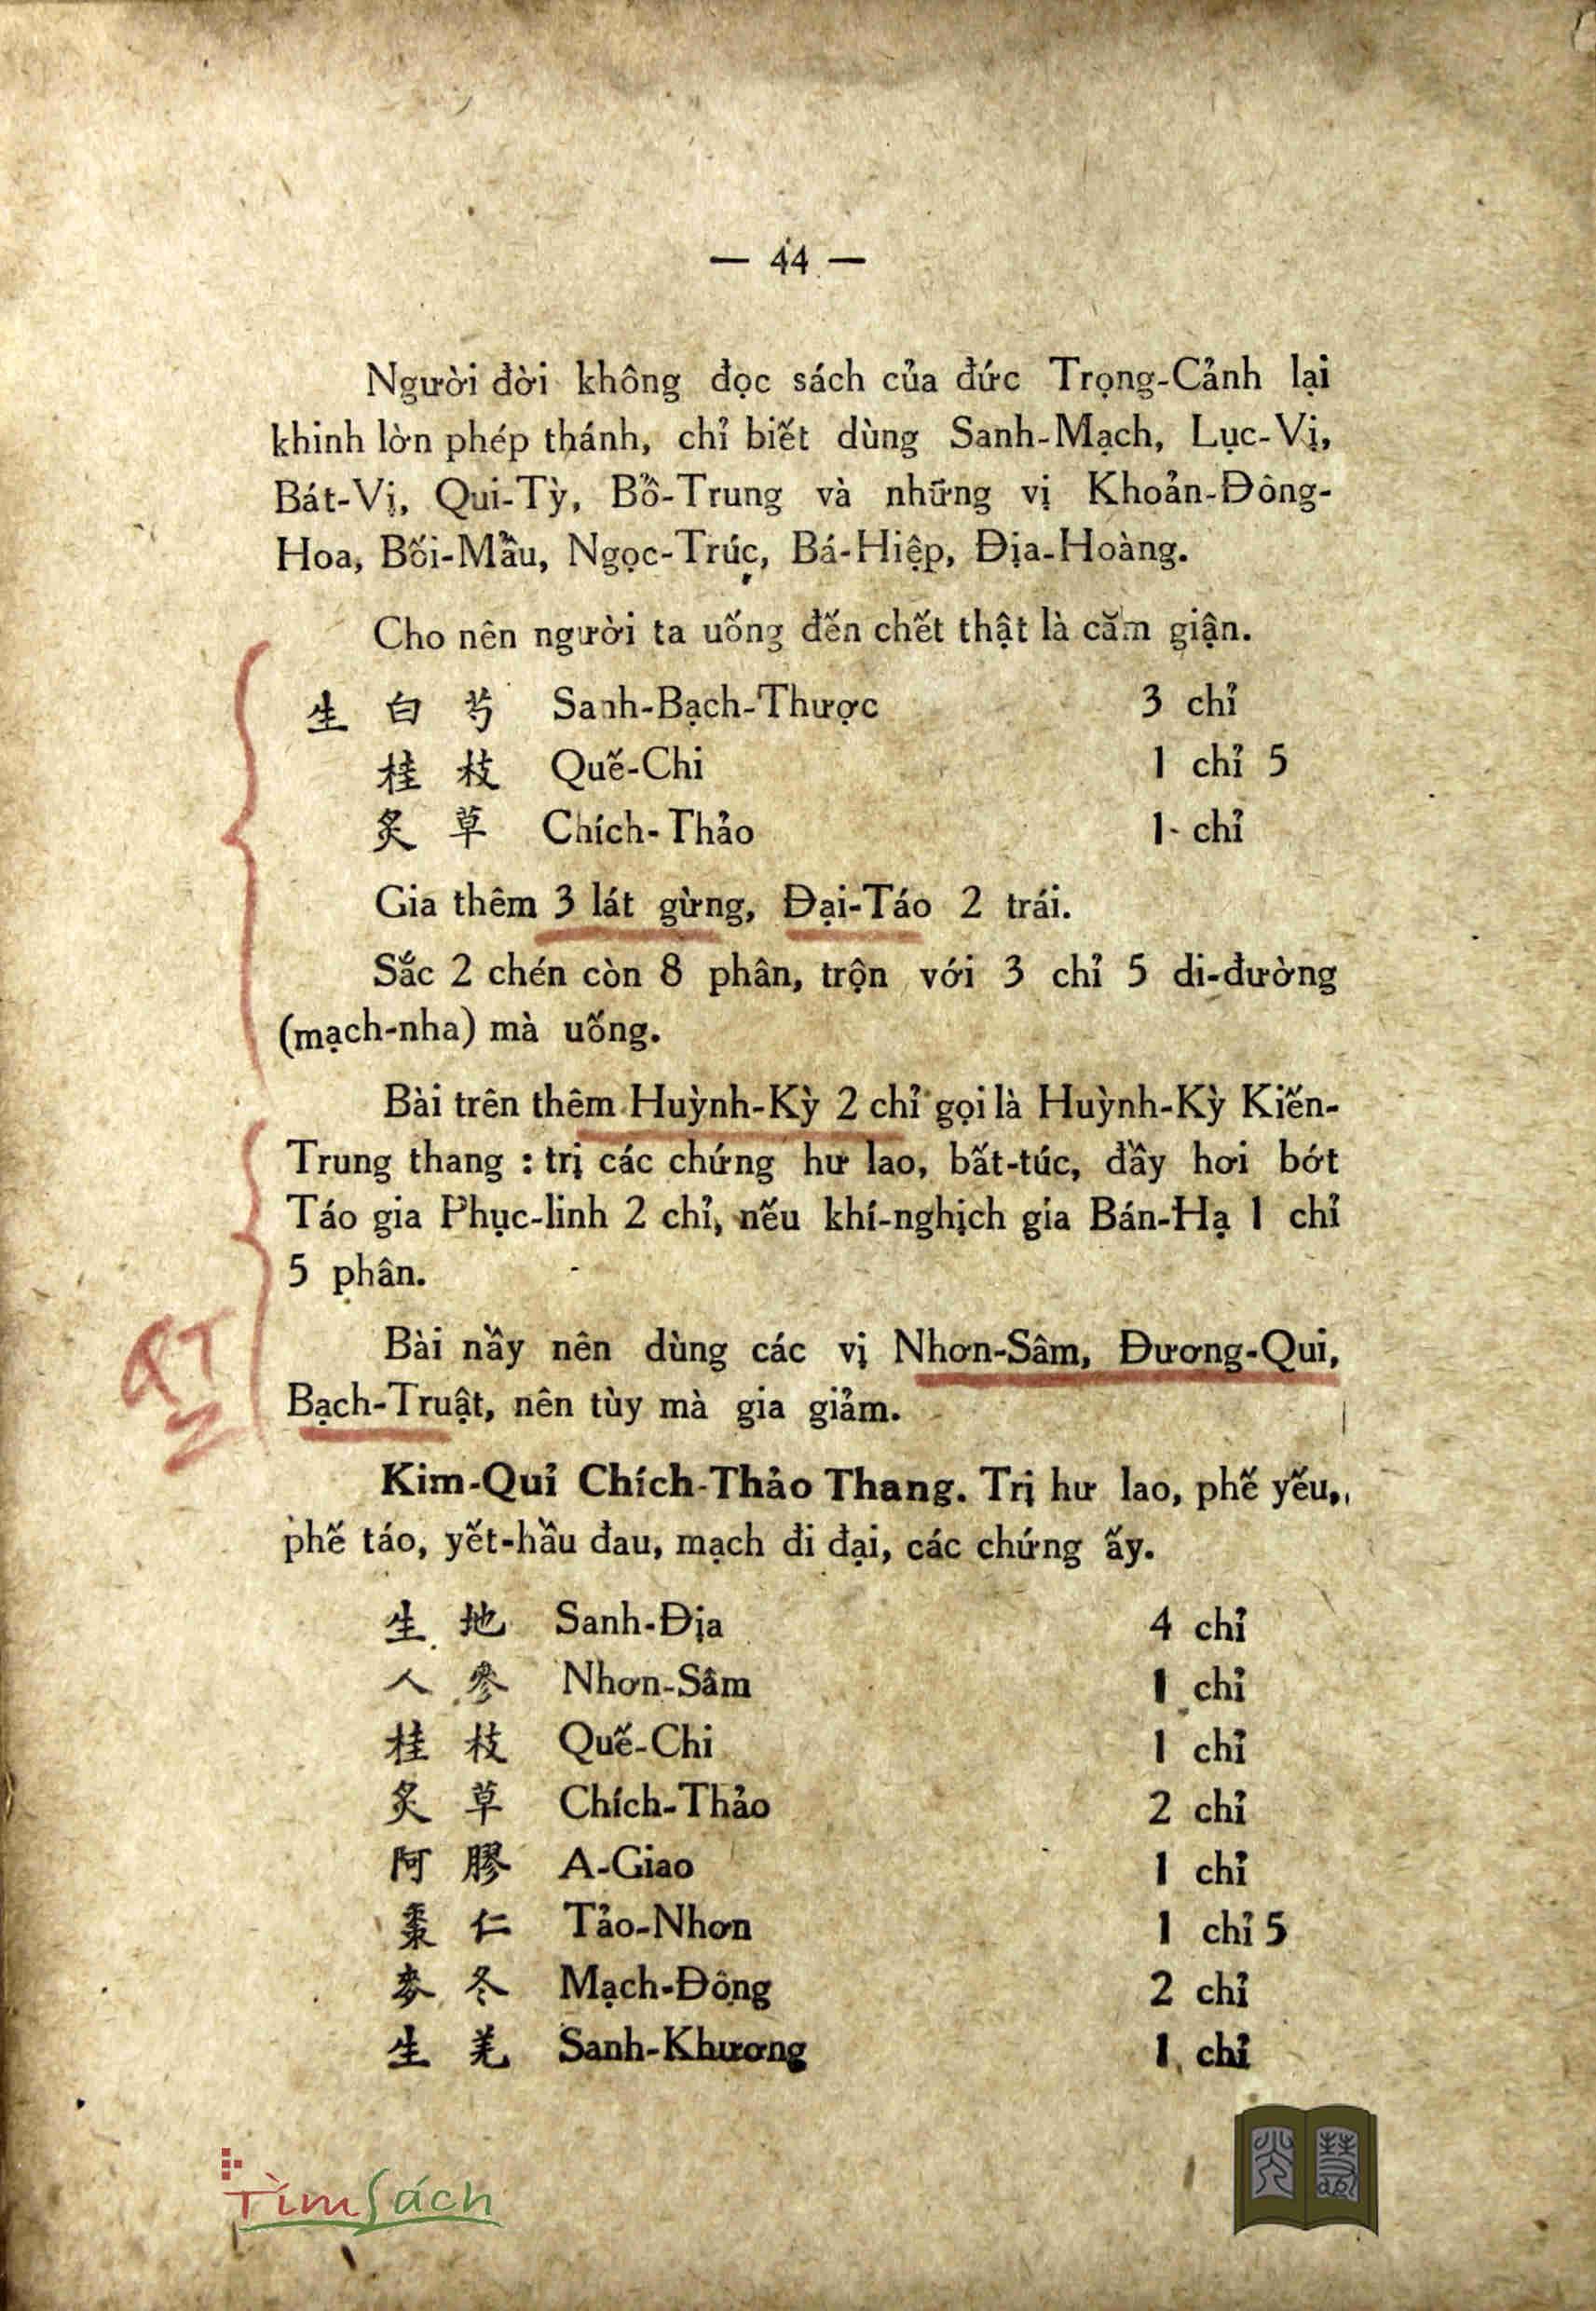 — 44 —
Người đời không đọc sách của đức Trọng-Cảnh lại
khinh lờn phép thánh, chỉ biết dùng Sanh-Mạch, Lục-Vị,
Bát-Vị, Qui-Tỳ, Bồ-Trung và những vị Khoản-Đông-
Hoa, Bối-Mẫu, Ngọc-Trúc, Bá-Hiệp, Địa-Hoàng.
Cho nên người ta uống đến chết thật là căm giận.
生 白 芍 Sanh-Bạch-Thược 3 chỉ
桂 枝 Quế-Chi 1 chỉ 5
炙 草 Chích-Thảo 1 chỉ
Gia thêm 3 lát gừng, Đại-Táo 2 trái.
Sắc 2 chén còn 8 phân, trộn với 3 chỉ 5 di-đường
(mạch-nha) mà uống.
Bài trên thêm Huỳnh-Kỳ 2 chỉ gọi là Huỳnh-Kỳ Kiến-
Trung thang : trị các chứng hư lao, bất-túc, đầy hơi bớt
Táo gia Phục-linh 2 chỉ, nếu khí-nghịch gia Bán-Hạ 1 chỉ
5 phân.
Bài nầy nên dùng các vị Nhơn-Sâm, Đương-Qui,
Bạch-Truật, nên tùy mà gia giảm.
Kim-Quỉ Chích-Thảo Thang. Trị hư lao, phế yếu,
phế táo, yết-hầu đau, mạch đi đại, các chứng ấy.
生 地 Sanh-Địa 4 chỉ
人 參 Nhơn-Sâm 1 chỉ
桂 枝 Quế-Chi 1 chỉ
炙 草 Chích-Thảo 2 chỉ
阿 膠 A-Giao 1 chỉ
棗 仁 Tảo-Nhơn 1 chỉ 5
麥 冬 Mạch-Đông 2 chỉ
生 羌 Sanh-Khương 1 chỉ
TìmSách